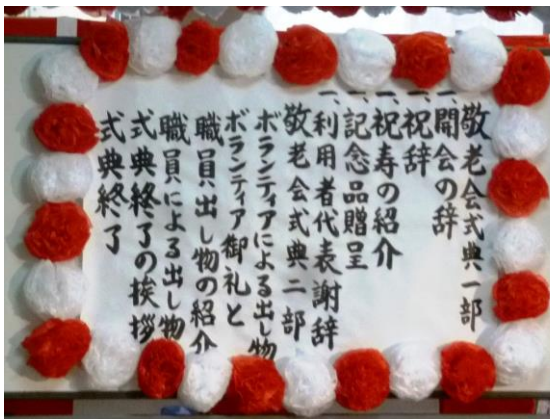 敬老会式典一部
一、開会の辞
一、祝辞
一、祝寿の紹介
一、記念品贈呈
一、利用者代表謝辞
敬老会式典二部
ボランティアによる出し物
ボランティア御礼と
職員出し物の紹介
職員による出し物
式典終了の挨拶
式典終了